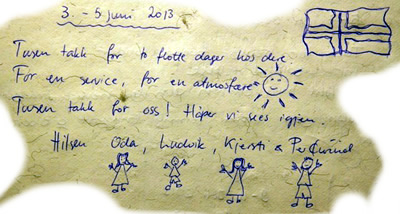 3. - 5 juni 2013
Tusen takk for to flotte dager hos dere.
For en service, for en atmosfære
Tusen takk for oss! Håper vi sees igjen.
Hilsen Oda, Ludvik, Kjersti & Per Øivind